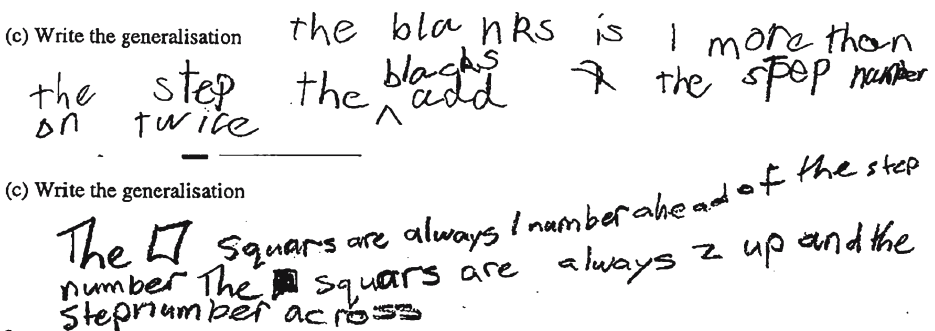 (c) Write the generalisation the blanks is 1 more than
the step the blacks add the step number
on twice
(c) Write the generalisation
The □ squars are always 1 number ahead of the step
number The ■ squars are always 2 up and the
stepnumber across